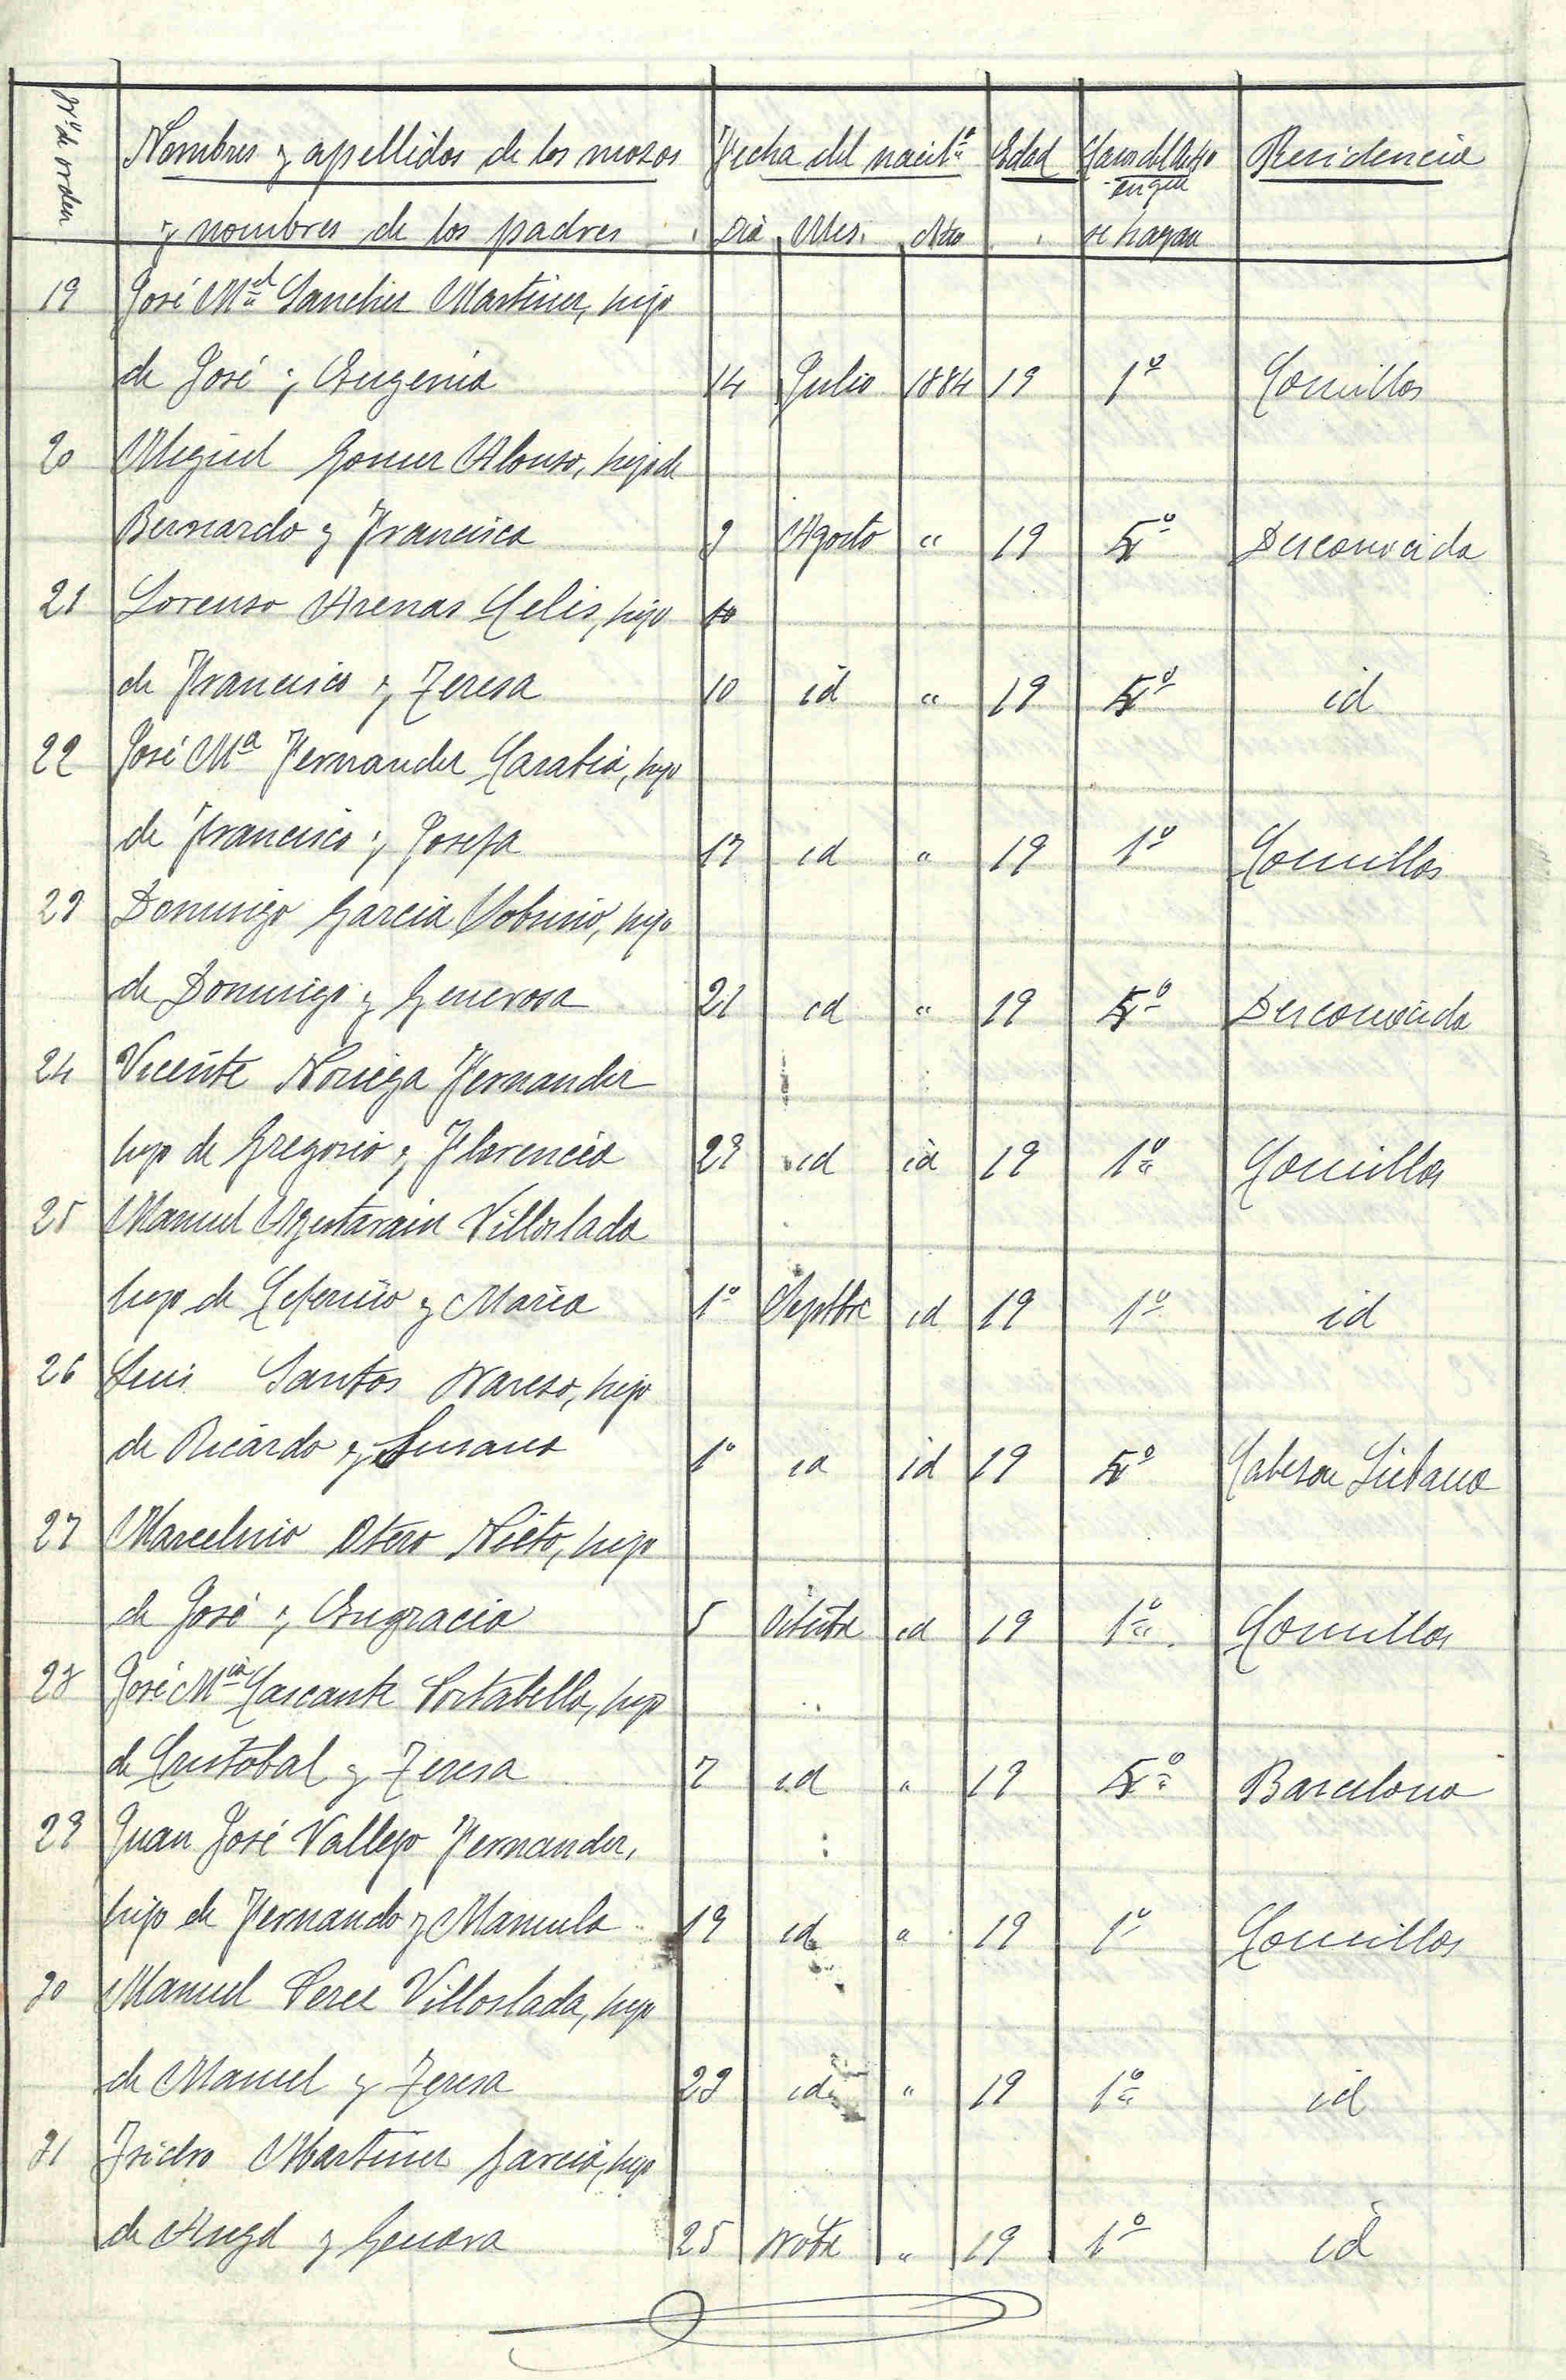 Nº de orden Nombres y apellidos de los mozos Fecha del nacitº Edad Caso del Artº Residencia
en que
y nombres de los padres Dia Mes. Año se hayan
19 José Mª Sanchez Martinez, hijo
de José y Eugenia 14 Julio 1884 19 1º Comillas
20 Miguel Gomez Alonso, hijo de
Bernardo y Francisca 9 Agosto " 19 5º Desconocida
21 Lorenzo Arenas Celis, hijo 10
de Francisco y Teresa 10 id " 19 5º id
22 José Mª Fernandez Sarabia, hijo
de Francisco y Josefa 17 id " 19 1º Comillas
23 Domingo Garcia Sobrino, hijo
de Domingo y Generosa 21 id " 19 5º Desconocida
24 Vicente Noriega Fernandez
hijo de Gregorio y Florencia 29 id id 19 1º Comillas
25 Manuel Villoslada
hijo de Ceferino y Maria 1º Septbre id 19 1º id
26 Luis Santos hijo
de Ricardo y Susana 1º id id 19 5º Cabezon Liebana
27 Marcelino Otero Nieto, hijo
de José y Engracia 5 Octubre id 19 1º Comillas
28 José Mª Cascante Portabella, hijo
de Cristobal y Teresa 7 id " 19 5º Barcelona
29 Juan José Vallejo Fernandez,
hijo de Fernando y Manuela 19 id " 19 1º Comillas
30 Manuel Perez Villoslada, hijo
de Manuel y Teresa 23 id " 19 1º id
31 Isidro Martinez Garcia, hijo
de Angel y Genara 25 Novbre " 19 1º id